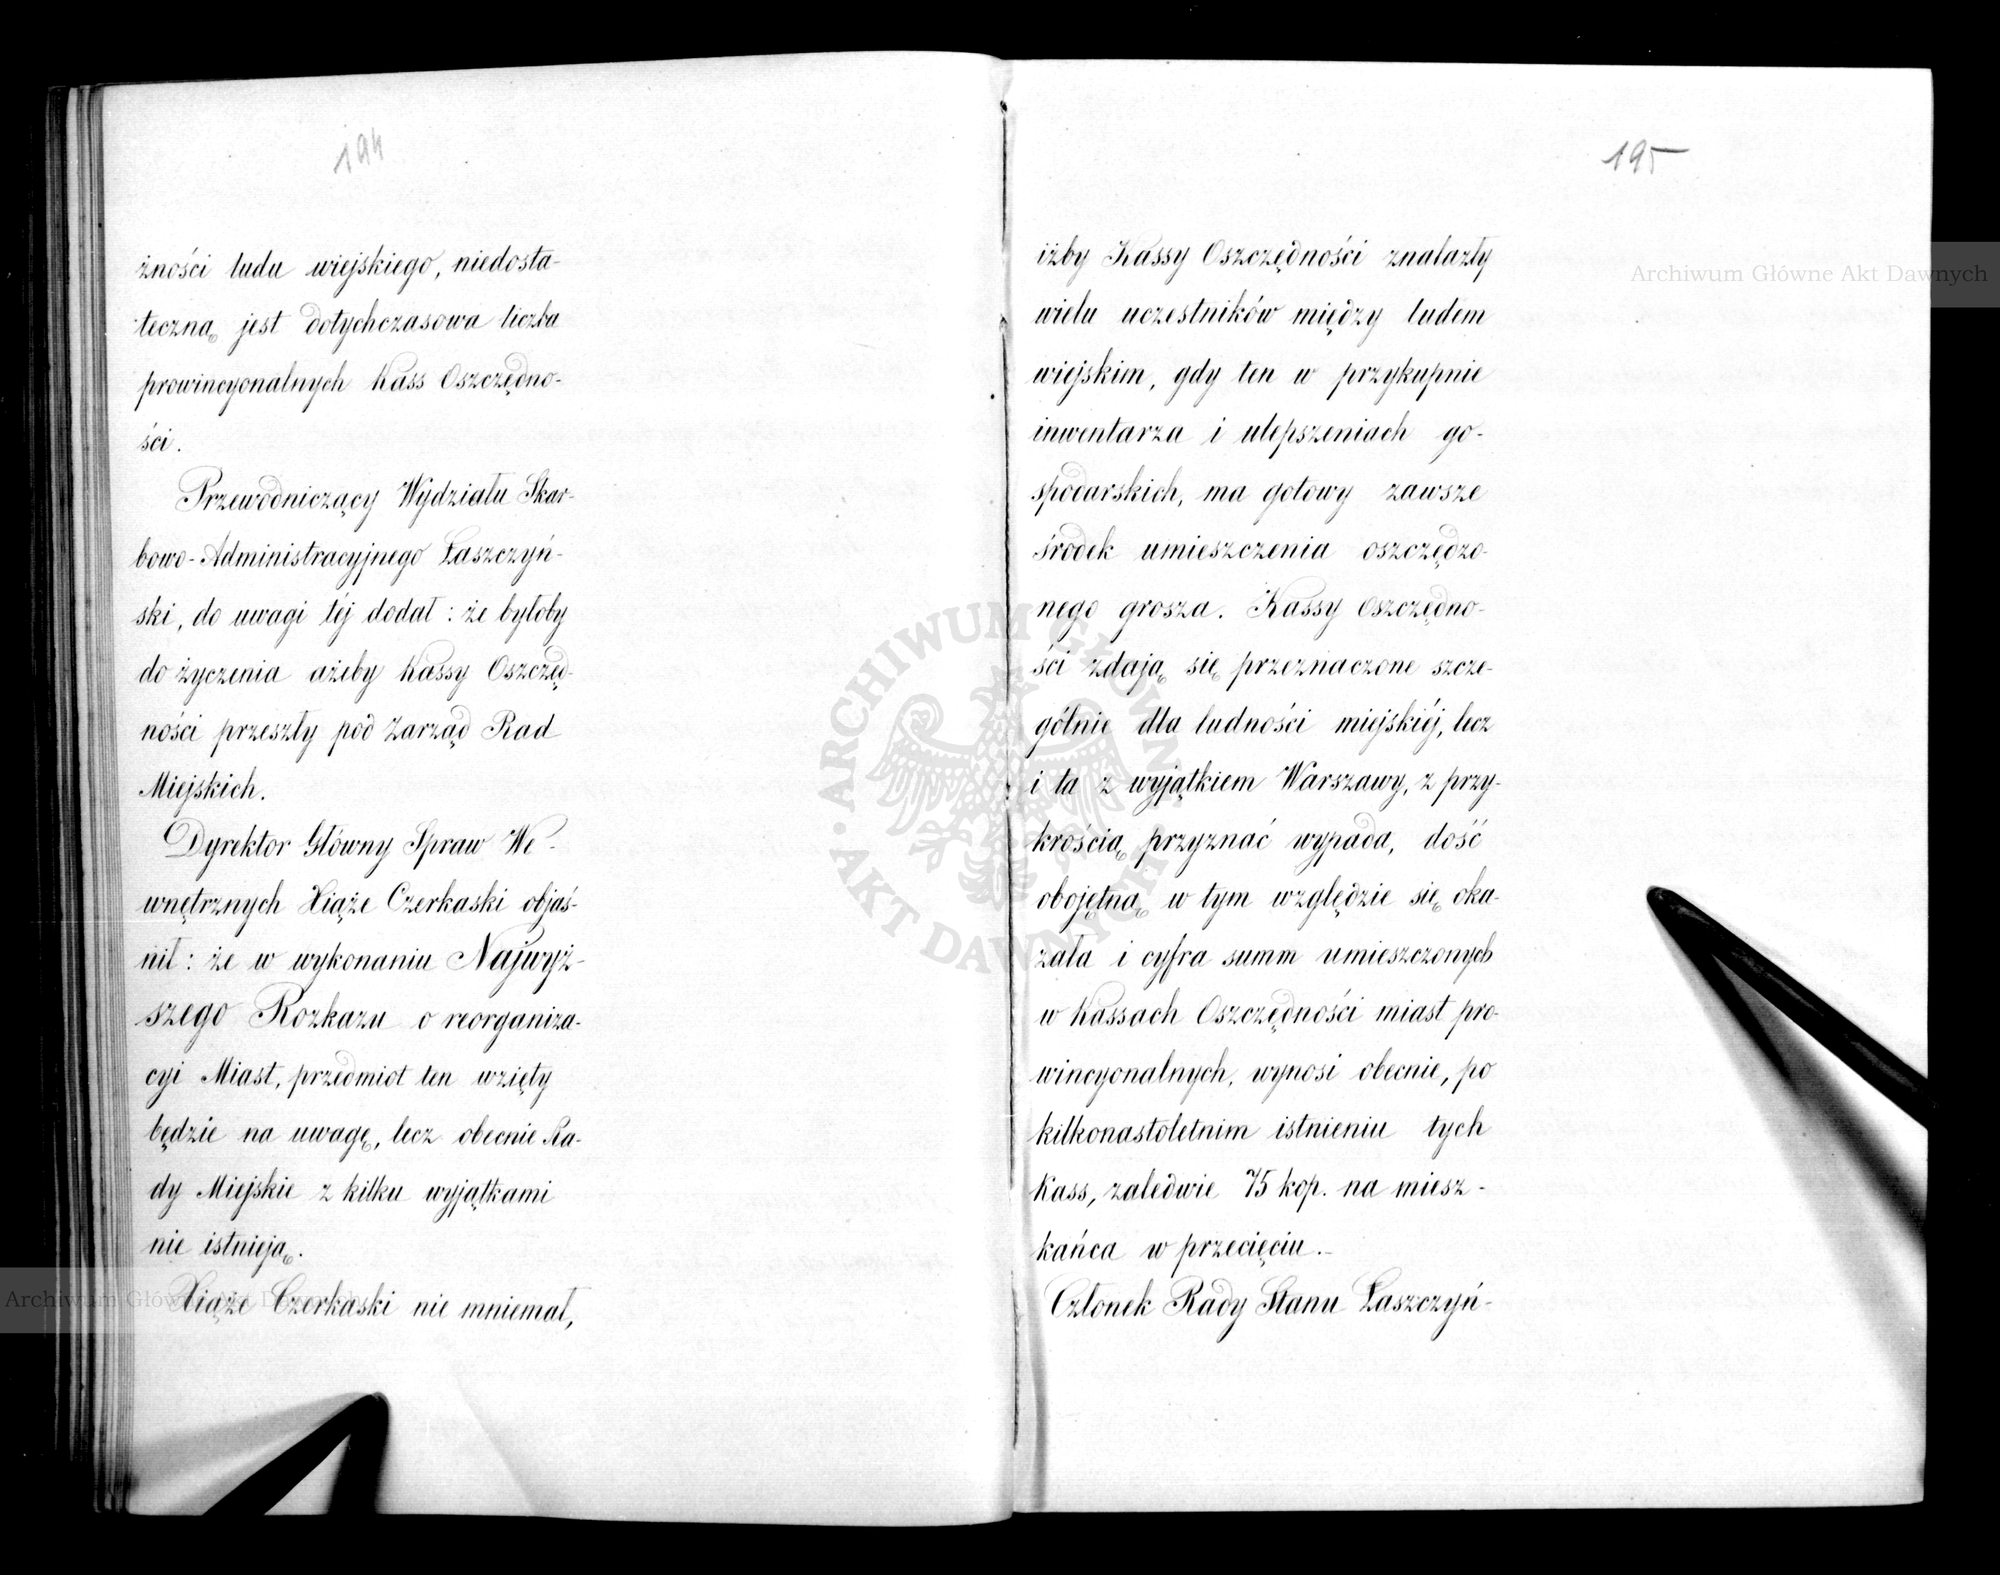 194
żności ludu wiejskiego, niedosta-
teczną jest dotychczasowa liczba
prowincyonalnych Kass Oszczędno-
ści.
Przewodniczący Wydziału Skar-
bowo-Administracyjnego Łaszczyń-
ski, do uwagi téj dodał: że byłoby
do życzenia ażeby Kassy Oszczęd-
ności przeszły pod Zarząd Rad
Miejskich.
Dyrektor Główny Spraw We-
wnętrznych Xiąże Czerkaski objaś-
nił: że w wykonaniu Najwyż-
szego Rozkazu o reorganiza-
cyi Miast, przedmiot ten wzięty
będzie na uwagę, lecz obecnie Ra-
dy Miejskie z kilku wyjątkami
nie istnieją.
Xiąże Czerkaski nie mniemał,
195
iżby Kassy Oszczędności znalazły
wielu uczestników między ludem
wiejskim, gdy ten w przykupnie
inwentarza i ulepszeniach go-
spodarskich, ma gotowy zawsze
środek umieszczenia oszczędzo-
nego grosza. Kassy Oszczędno-
ści zdają się przeznaczone szcze-
gólnie dla ludności miejskiéj, lecz
i ta z wyjątkiem Warszawy, z przy-
krością przyznać wypada, dość
obojętną w tym względzie się oka-
zała i cyfra summ umieszczonych
w Kassach Oszczędności miast pro-
wincyonalnych, wynosi obecnie, po
kilkonastoletnim istnieniu tych
Kass, zaledwie 75 kop. na miesz-
kańca w przecięciu.-
Członek Rady Stanu Łaszczyń-
Archiwum Główne Akt Dawnych
Archiwum Główne Akt Dawnych
ARCHIWUM GŁÓWNE AKT DAWNYCH